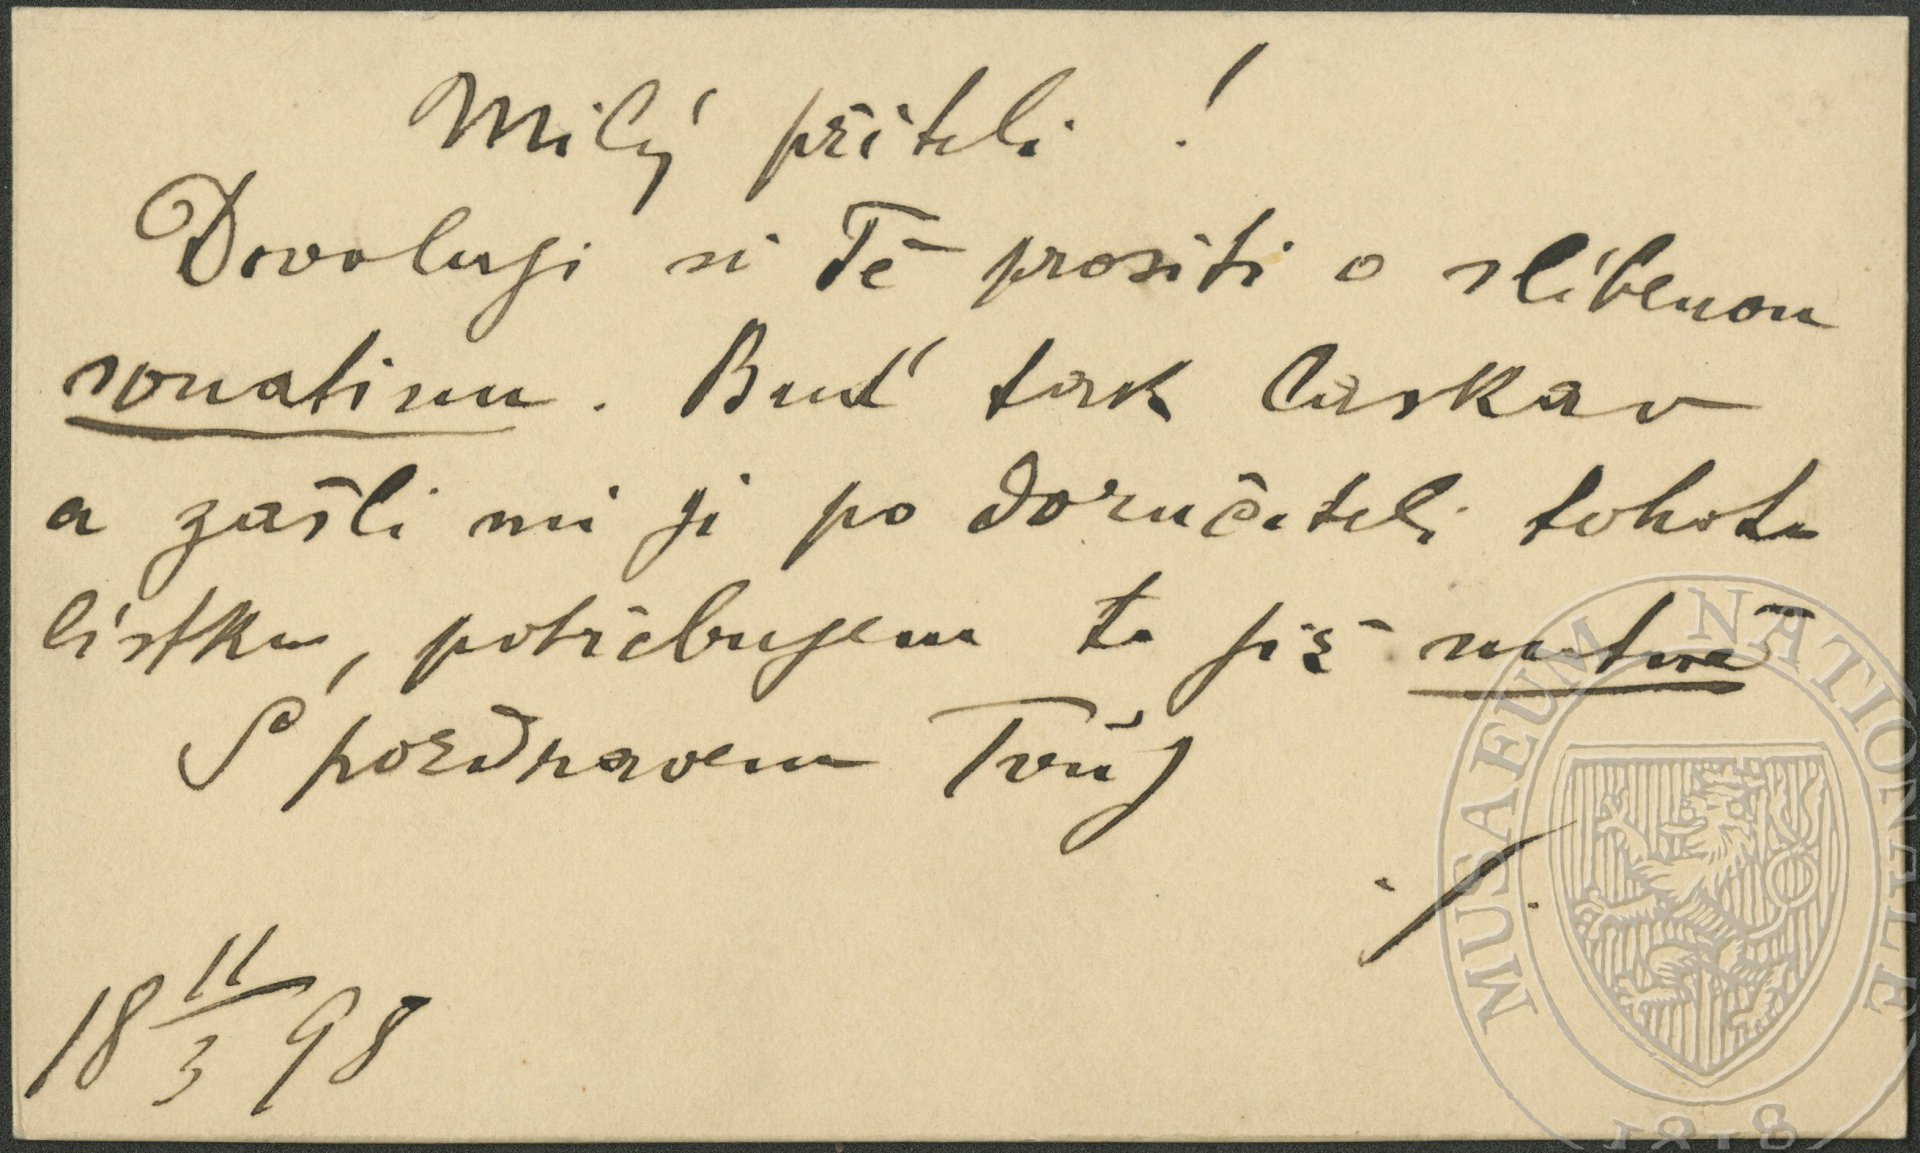 Milý příteli !
Dovoluji si Tě prositi o slíbenou
sonatinu. Buď tak laskav
a zašli mi ji po doručiteli tohoto
lístku, potřebujem to již nutně
S pozdravem Tvůj
18 11/3 98
MUSAEUM NATIONALE
1818